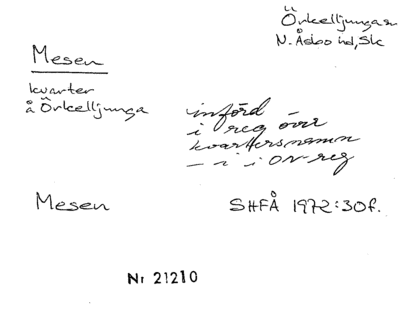 Örkelljunga sn
N. Åsbo hd, Sk
Mesen
kvarter
å Örkelljunga
införd
i reg över
kvartersnamn
– " – i ON-reg
Mesen
SHFÅ 1972:30f.
Nr 21210